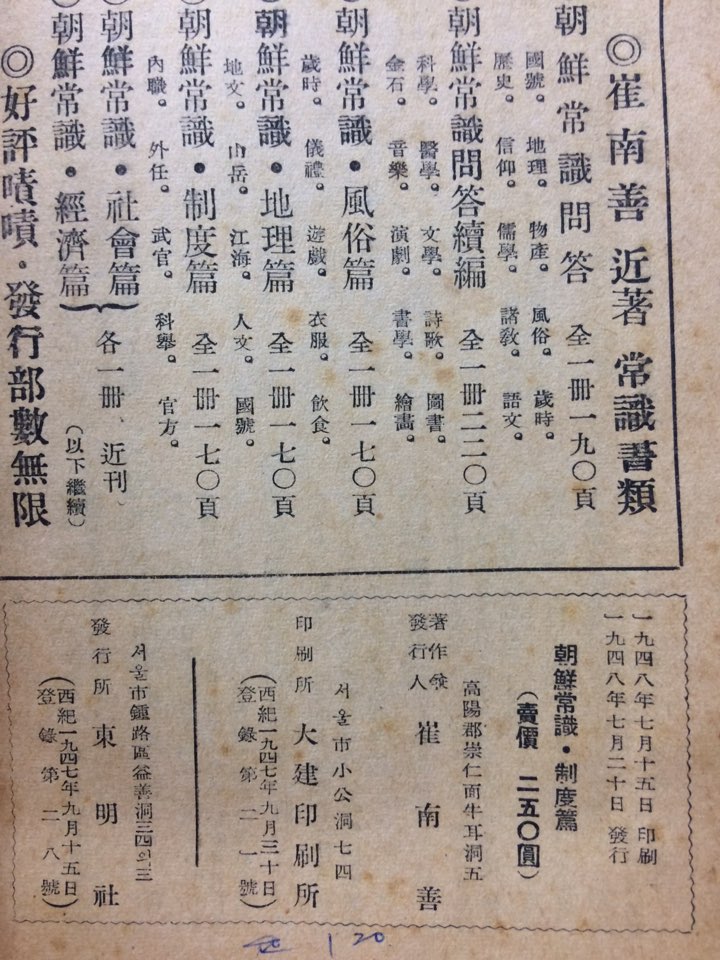 ◎崔南善 近著 常識書類
朝鮮常識問答 全一冊一九〇頁
國號。地理。物產。風俗。歲時。
歷史。信仰。儒學。諸敎。語文。
朝鮮常識問答續編 全一冊二二〇頁
科學。醫學。文學。詩歌。圖書。
金石。音樂。演劇。書學。繪畵。
朝鮮常識・風俗篇 全一冊一七〇頁
歲時。儀禮。遊戱。衣服。飮食。
朝鮮常識・地理篇 全一冊一七〇頁
地文。山岳。江海。人文。國號。
朝鮮常識・制度篇 全一冊一七〇頁
內職。外任。武官。科擧。官方。
◎朝鮮常識・社會篇
◎朝鮮常識・經濟篇
各一冊、近刊
(以下繼續)
◎好評嘖嘖・發行部數無限
一九四八年七月十五日 印刷
一九四八年七月二十日 發行
朝鮮常識・制度篇
(賣價 二五〇圓)
高陽郡崇仁面牛耳洞五
著作兼
發行人 崔南善
서울市小公洞七四
印刷所 大建印刷所
(西紀一九四七年九月三十日
登錄第二一號)
서울市鍾路區益善洞三四의三
發行所 東明社
(西紀一九四七年九月十五日
登錄第二八號)
120